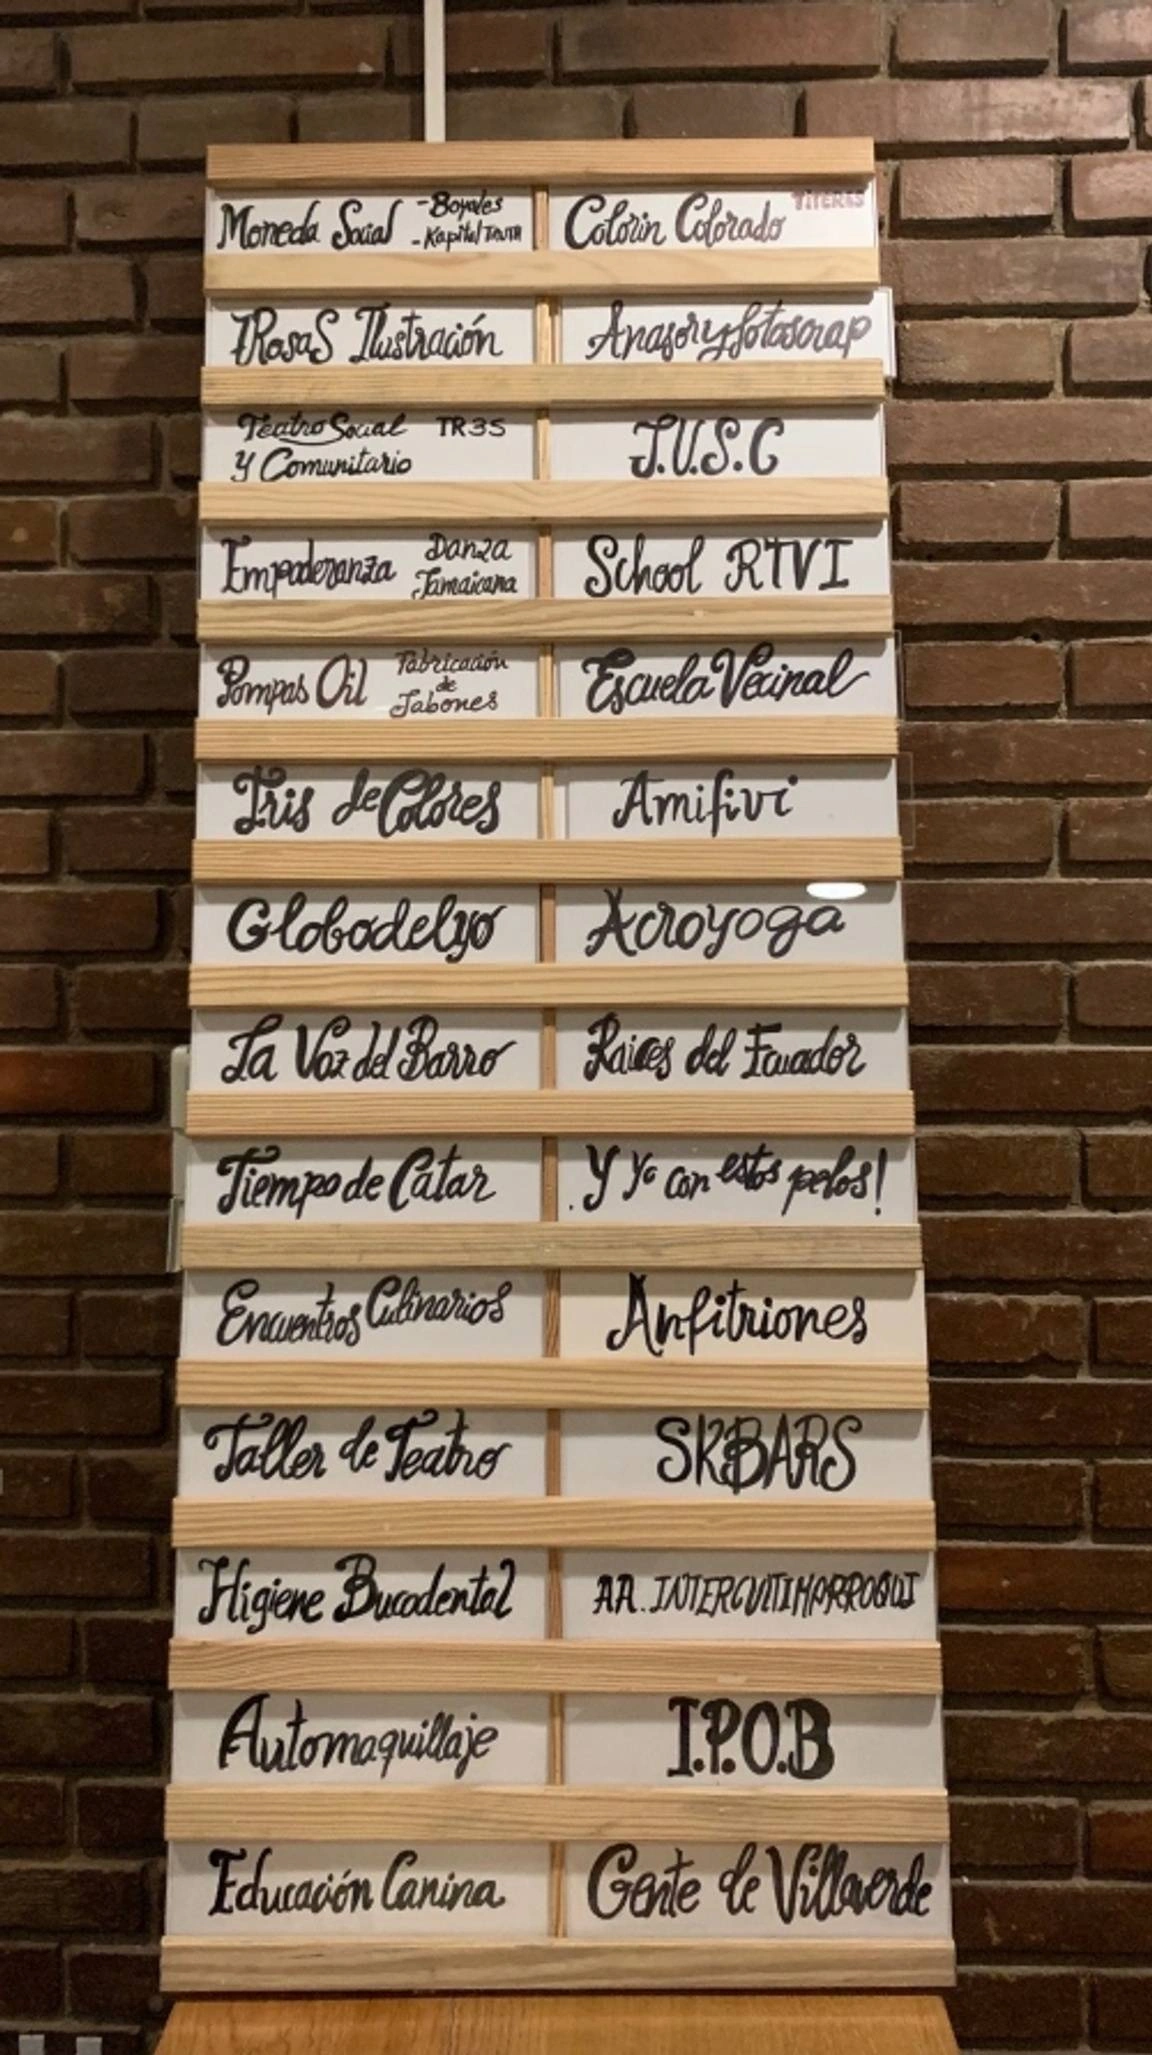 Moneda Social
- Boyales
- Kapital TRUTH
Colorin Colorado
TiTERES
7RosaS Ilustración
Anasoryfotoscrap
Teatro Social
y Comunitario
TR3S
J.U.S.C
Empoderanza
Danza
Jamaicana
School RTVI
Pompas Oil
Fabricación
de
Jabones
Escuela Vecinal
Iris de Colores
Amifivi
Globodelyo
Acroyoga
La Voz del Barro
Raices del Ecuador
Tiempo de Catar
Y yo con estos pelos!
Encuentros Culinarios
Anfitriones
Taller de Teatro
SKBARS
Higiene Bucodental
AA. INTERCULTIMARROQUI
Automaquillaje
I.P.O.B
Educación Canina
Gente de Villaverde